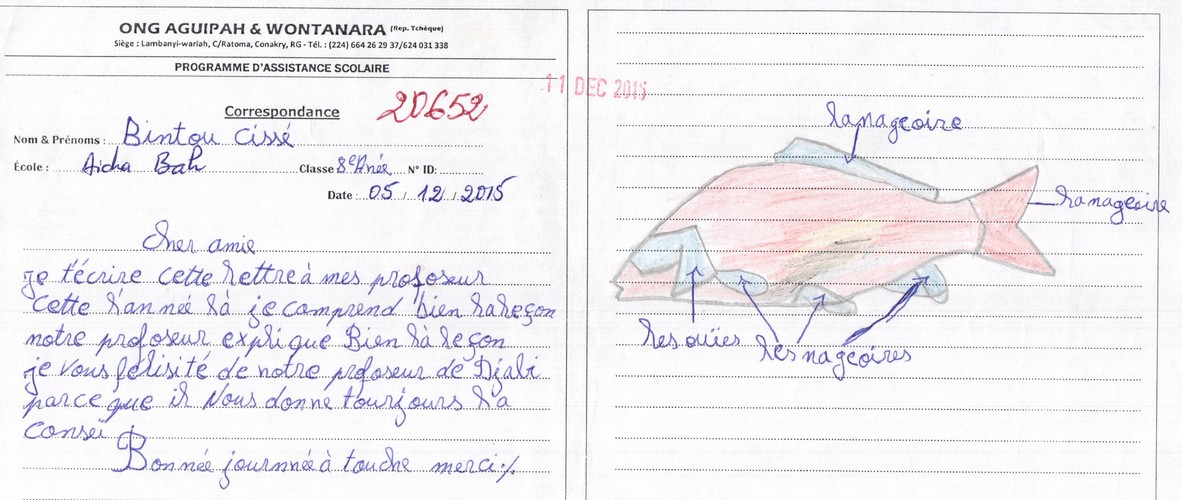 ONG AGUIPAH & WONTANARA (Rep. Tchèque)
Siège : Lambanyi-wariah, C/Ratoma, Conakry, RG - Tél. : (224) 664 26 29 37/624 031 338
PROGRAMME D'ASSISTANCE SCOLAIRE
11 DEC 2015
Correspondance
20652
Nom & Prénoms : Bintou Cissé
École : Aicha Bah Classe 8e Anée N° ID:
Date : 05 / 12 / 2015
Cher amie
je t'écrire cette lettre à mes profoseur
cette l'année là je comprend bien la leçon
notre profoseur explique Bien là leçon
je vous félisité de notre profoseur de Djali
parce que il Nous donné tourjours la
conseï
Bonnée journnée à touche merci ./.
la nageoire
la nageoire
les ouïes les nageoires